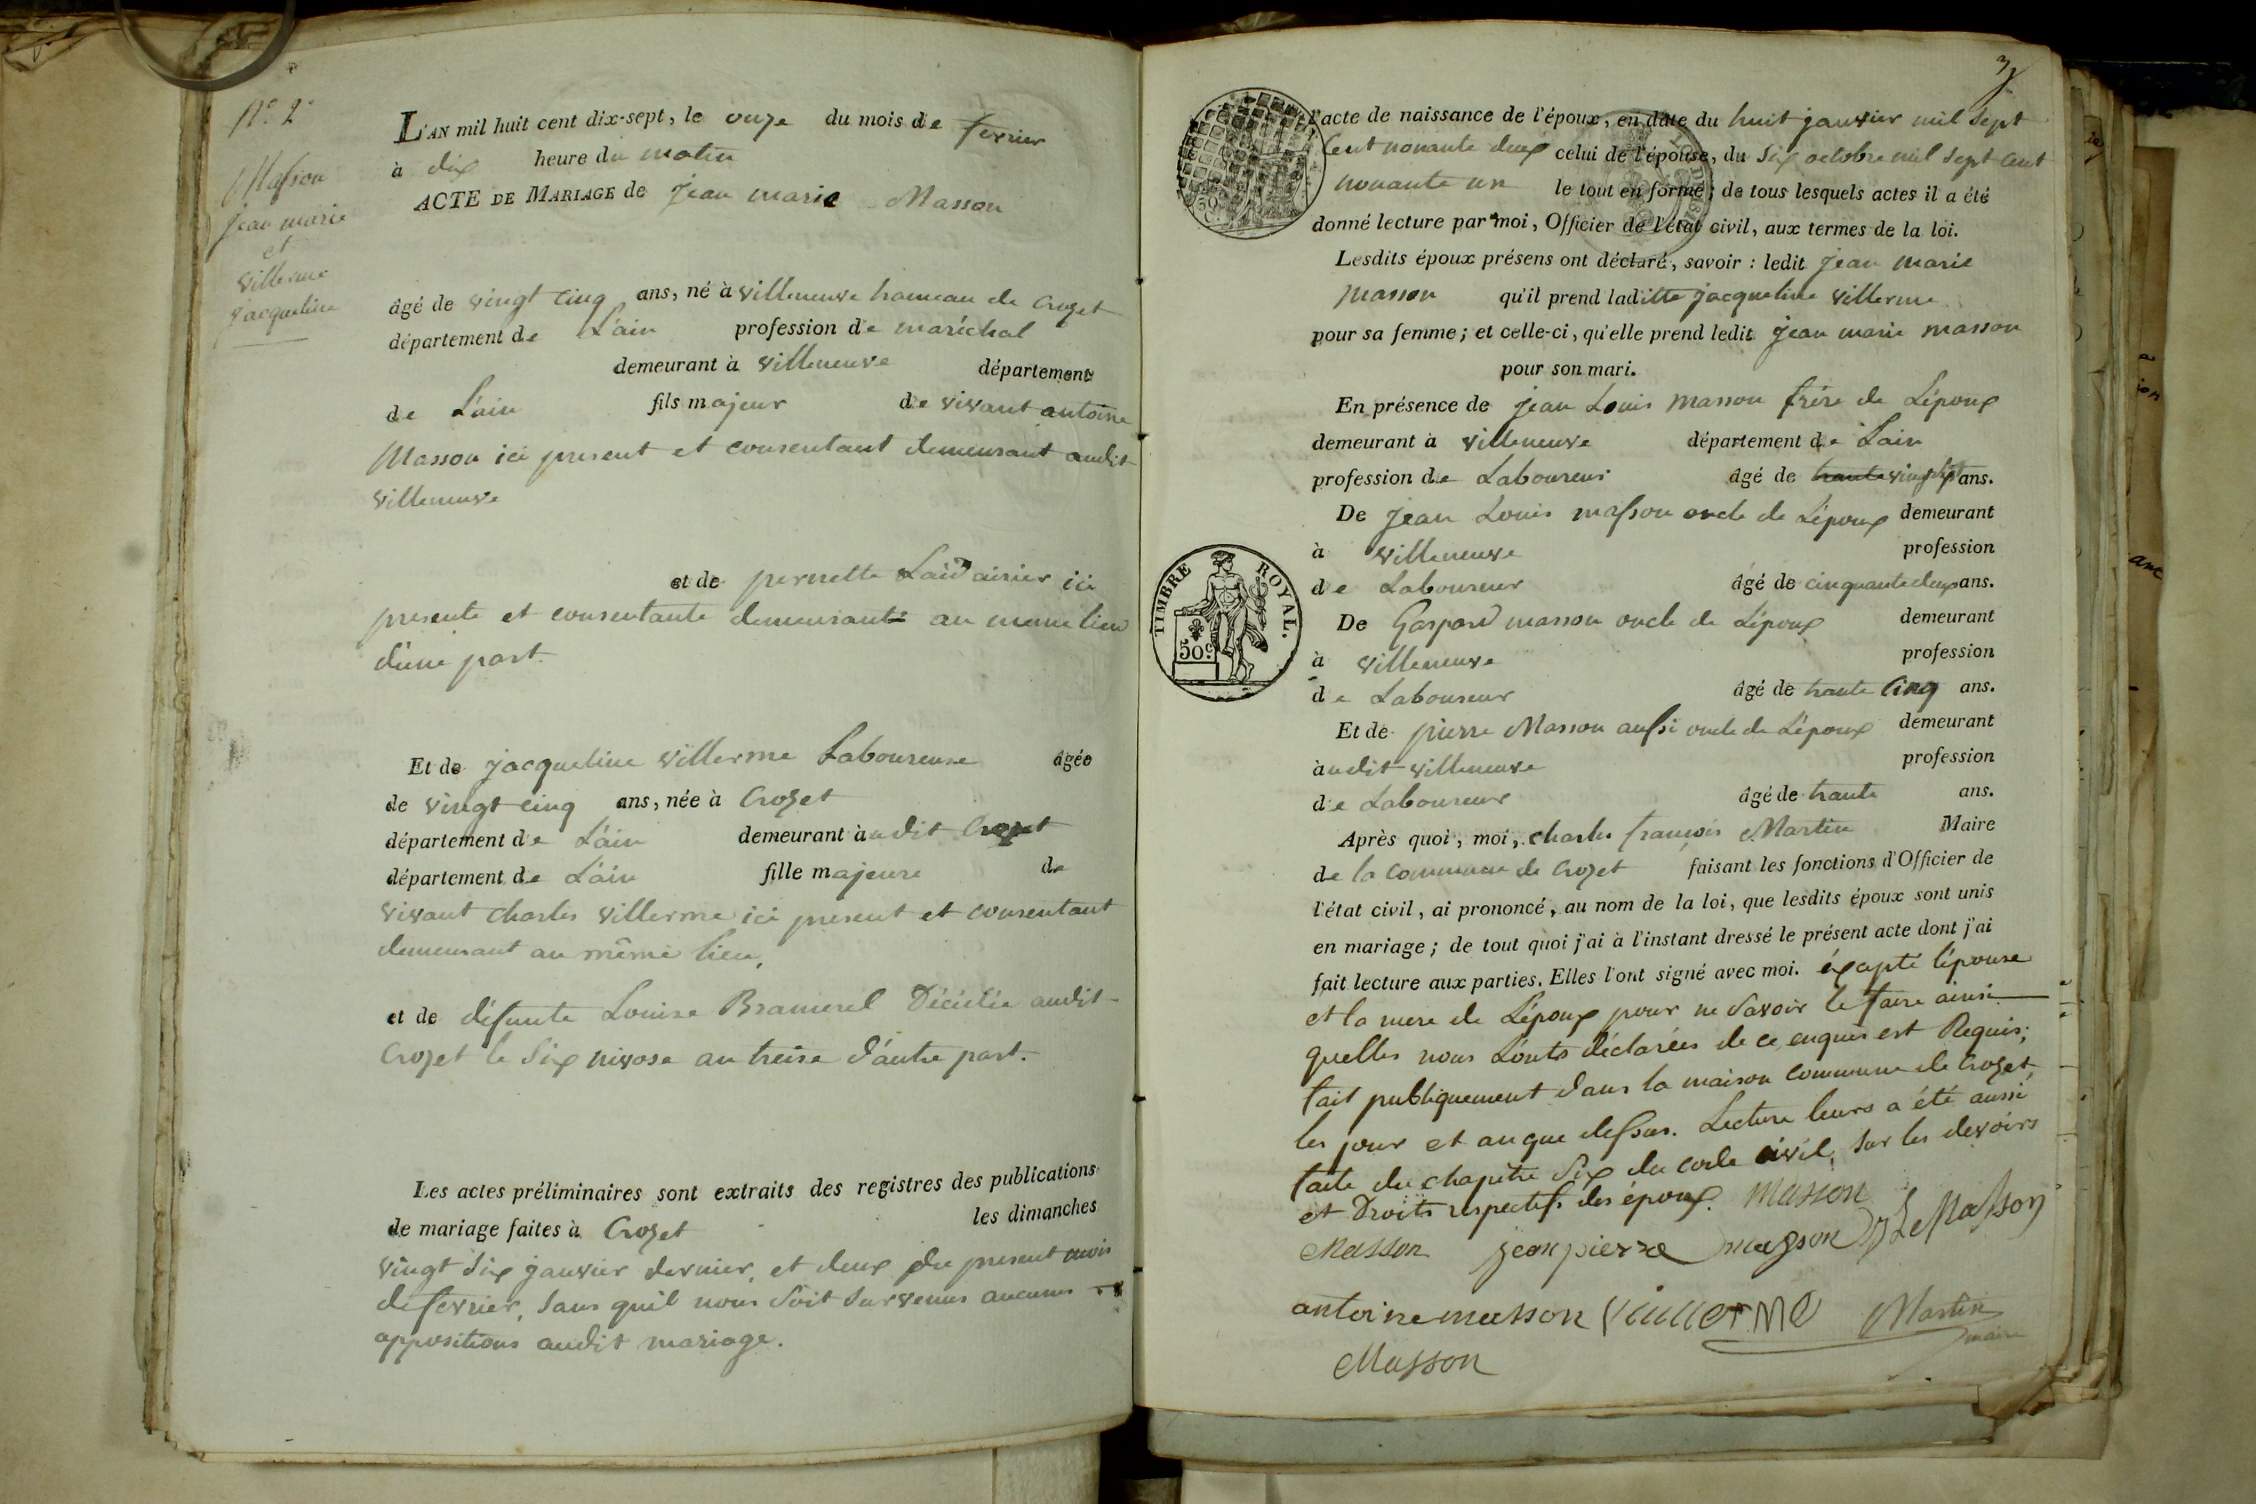 N.º 2.
Masson
jean marie
et
villerme
jacqueline
L'AN mil huit cent dix-sept, le onze du mois de fevrier
à dix heure du matin
ACTE DE MARIAGE de jean marie Masson
âgé de vingt cinq ans, né à villeneuve hameau de Crozet
département de L'ain profession de maréchal
demeurant à villeneuve département
de L'ain fils majeur de vivant antoine
Masson ici present et consentant demeurant audit
villeneuve
et de pernette ici
presente et consentante demeurante au meme lieu
d'une part.
Et de jacqueline villerme Laboureuse âgée
de vingt cinq ans, née à Crozet
département de L'ain demeurant à udit Crozet
département de L'ain fille majeure de
vivant charles villerme ici present et consentant
demeurant au même lieu,
et de défunte Louise Décédée audit
Crozet le Six nivose an treise d'autre part.
Les actes préliminaires sont extraits des registres des publications
de mariage faites à Crozet les dimanches
vingt Six janvier dernier, et deux du present mois
de fevrier, sans quil nous soit survenus aucunes
oppositions audit mariage.
3
l'acte de naissance de l'époux, en date du huit janvier mil sept
Cent nonante deux celui de l'épouse, du Six octobre mil sept cent
nonante un le tout en forme ; de tous lesquels actes il a été
donné lecture par moi, Officier de l'état civil, aux termes de la loi.
Lesdits époux présens ont déclaré, savoir : ledit jean marie
masson qu'il prend laditte jacqueline villerme
pour sa femme ; et celle-ci, qu'elle prend ledit jean marie masson
pour son mari.
En présence de jean Louis masson frére de L'époux
demeurant à villeneuve département de Lain
profession de Laboureur âgé de trante ans.
De jean Louis masson oncle de L'époux demeurant
à villeneuve profession
de Laboureur âgé de cinquante deux ans.
De Gaspard masson oncle de L'époux demeurant
à villeneuve profession
de Laboureur âgé de trante Cinq ans.
TIMBRE ROYAL.
50c
Et de pierre Masson aussi oncle de L'époux demeurant
àudit villeneuve profession
de Laboureur âgé de trante ans.
Après quoi, moi, charles françois Martin Maire
de la commune de Crozet faisant les fonctions d'Officier de
l'état civil, ai prononcé, au nom de la loi, que lesdits époux sont unis
en mariage ; de tout quoi j'ai à l'instant dressé le présent acte dont j'ai
fait lecture aux parties. Elles l'ont signé avec moi. éxcepté l'épouse
et la mere de L'époux pour ne Savoir le faire ainsi
quelles nous L'onts déclarées de ce enquis est Requis;
fait publiquement dans la maison commune de Crozet,
les jour et an que dessus. Lecture leurs a été aussi
faite du chapitre Six du code civil, sur les devoirs
et Droits respectifs des époux. Masson
Masson jean pierre masson JLe Masson
antoine masson vuillerme Martin
maire
Masson